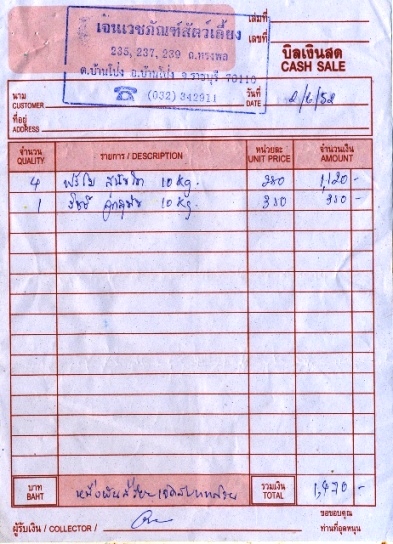 เจนเวชภัณฑ์สัตว์เลี้ยง
235, 237, 239 ถ.ทรงพล
ต.บ้านโป่ง อ.บ้านโป่ง จ.ราชบุรี 70110
☎ (032) 342911
เล่มที่
เลขที่
บิลเงินสด
CASH SALE
นาม
CUSTOMER
วันที่
DATE 2/6/52
ที่อยู่
ADDRESS
จำนวน รายการ / DESCRIPTION หน่วยละ จำนวนเงิน
QUALITY UNIT PRICE AMOUNT
4 10 kg. 280 1,120 -
1 10 kg. 350 350 -
บาท หนึ่งพันสี่ร้อยเจ็ดสิบบาทถ้วน รวมเงิน 1,470 -
BAHT TOTAL
ผู้รับเงิน / COLLECTOR /
ขอขอบคุณ
ท่านที่อุดหนุน